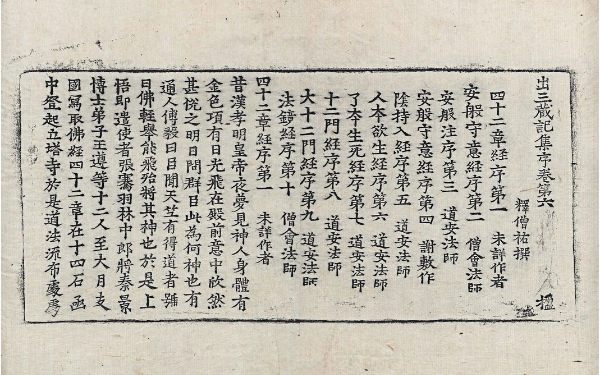 出三藏記集序卷第六
釋僧祐撰
楹
四十二章經序第一 未詳作者
安般守意經序第二 僧會法師
安般注序第三 道安法師
安般守意經序第四 謝敷作
陰持入經序第五 道安法師
人本欲生經序第六 道安法師
了本生死經序第七 道安法師
十二門經序第八 道安法師
大十二門經序第九 道安法師
法鏡經序第十 僧會法師
四十二章經序第一 未詳作者
昔漢孝明皇帝夜夢見神人身體有
金色項有日光飛在殿前意中欣然
甚悅之明日問群臣此為何神也有
通人傅毅曰臣聞天竺有得道者號
曰佛輕舉能飛殆將其神也於是上
悟即遣使者張騫羽林中郎將秦景
博士弟子王遵等十二人至大月支
國寫取佛經四十二章在十四石函
中登起立塔寺於是道法流布處處